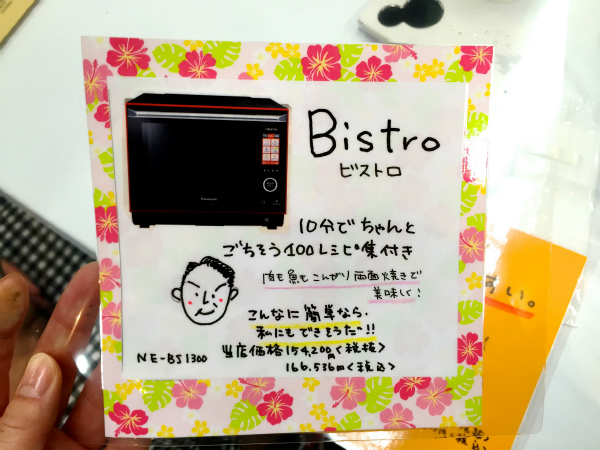 Bistro
ビストロ
Panasonic
10分でちゃんと
ごちそう100レシピ集付き
肉も魚もこんがり両面焼きで
美味しく!
こんなに簡単なら、
私にもできそうだ!!
当店価格154,200円<税抜>
166,536円<税込>
NE-BS1300
い。